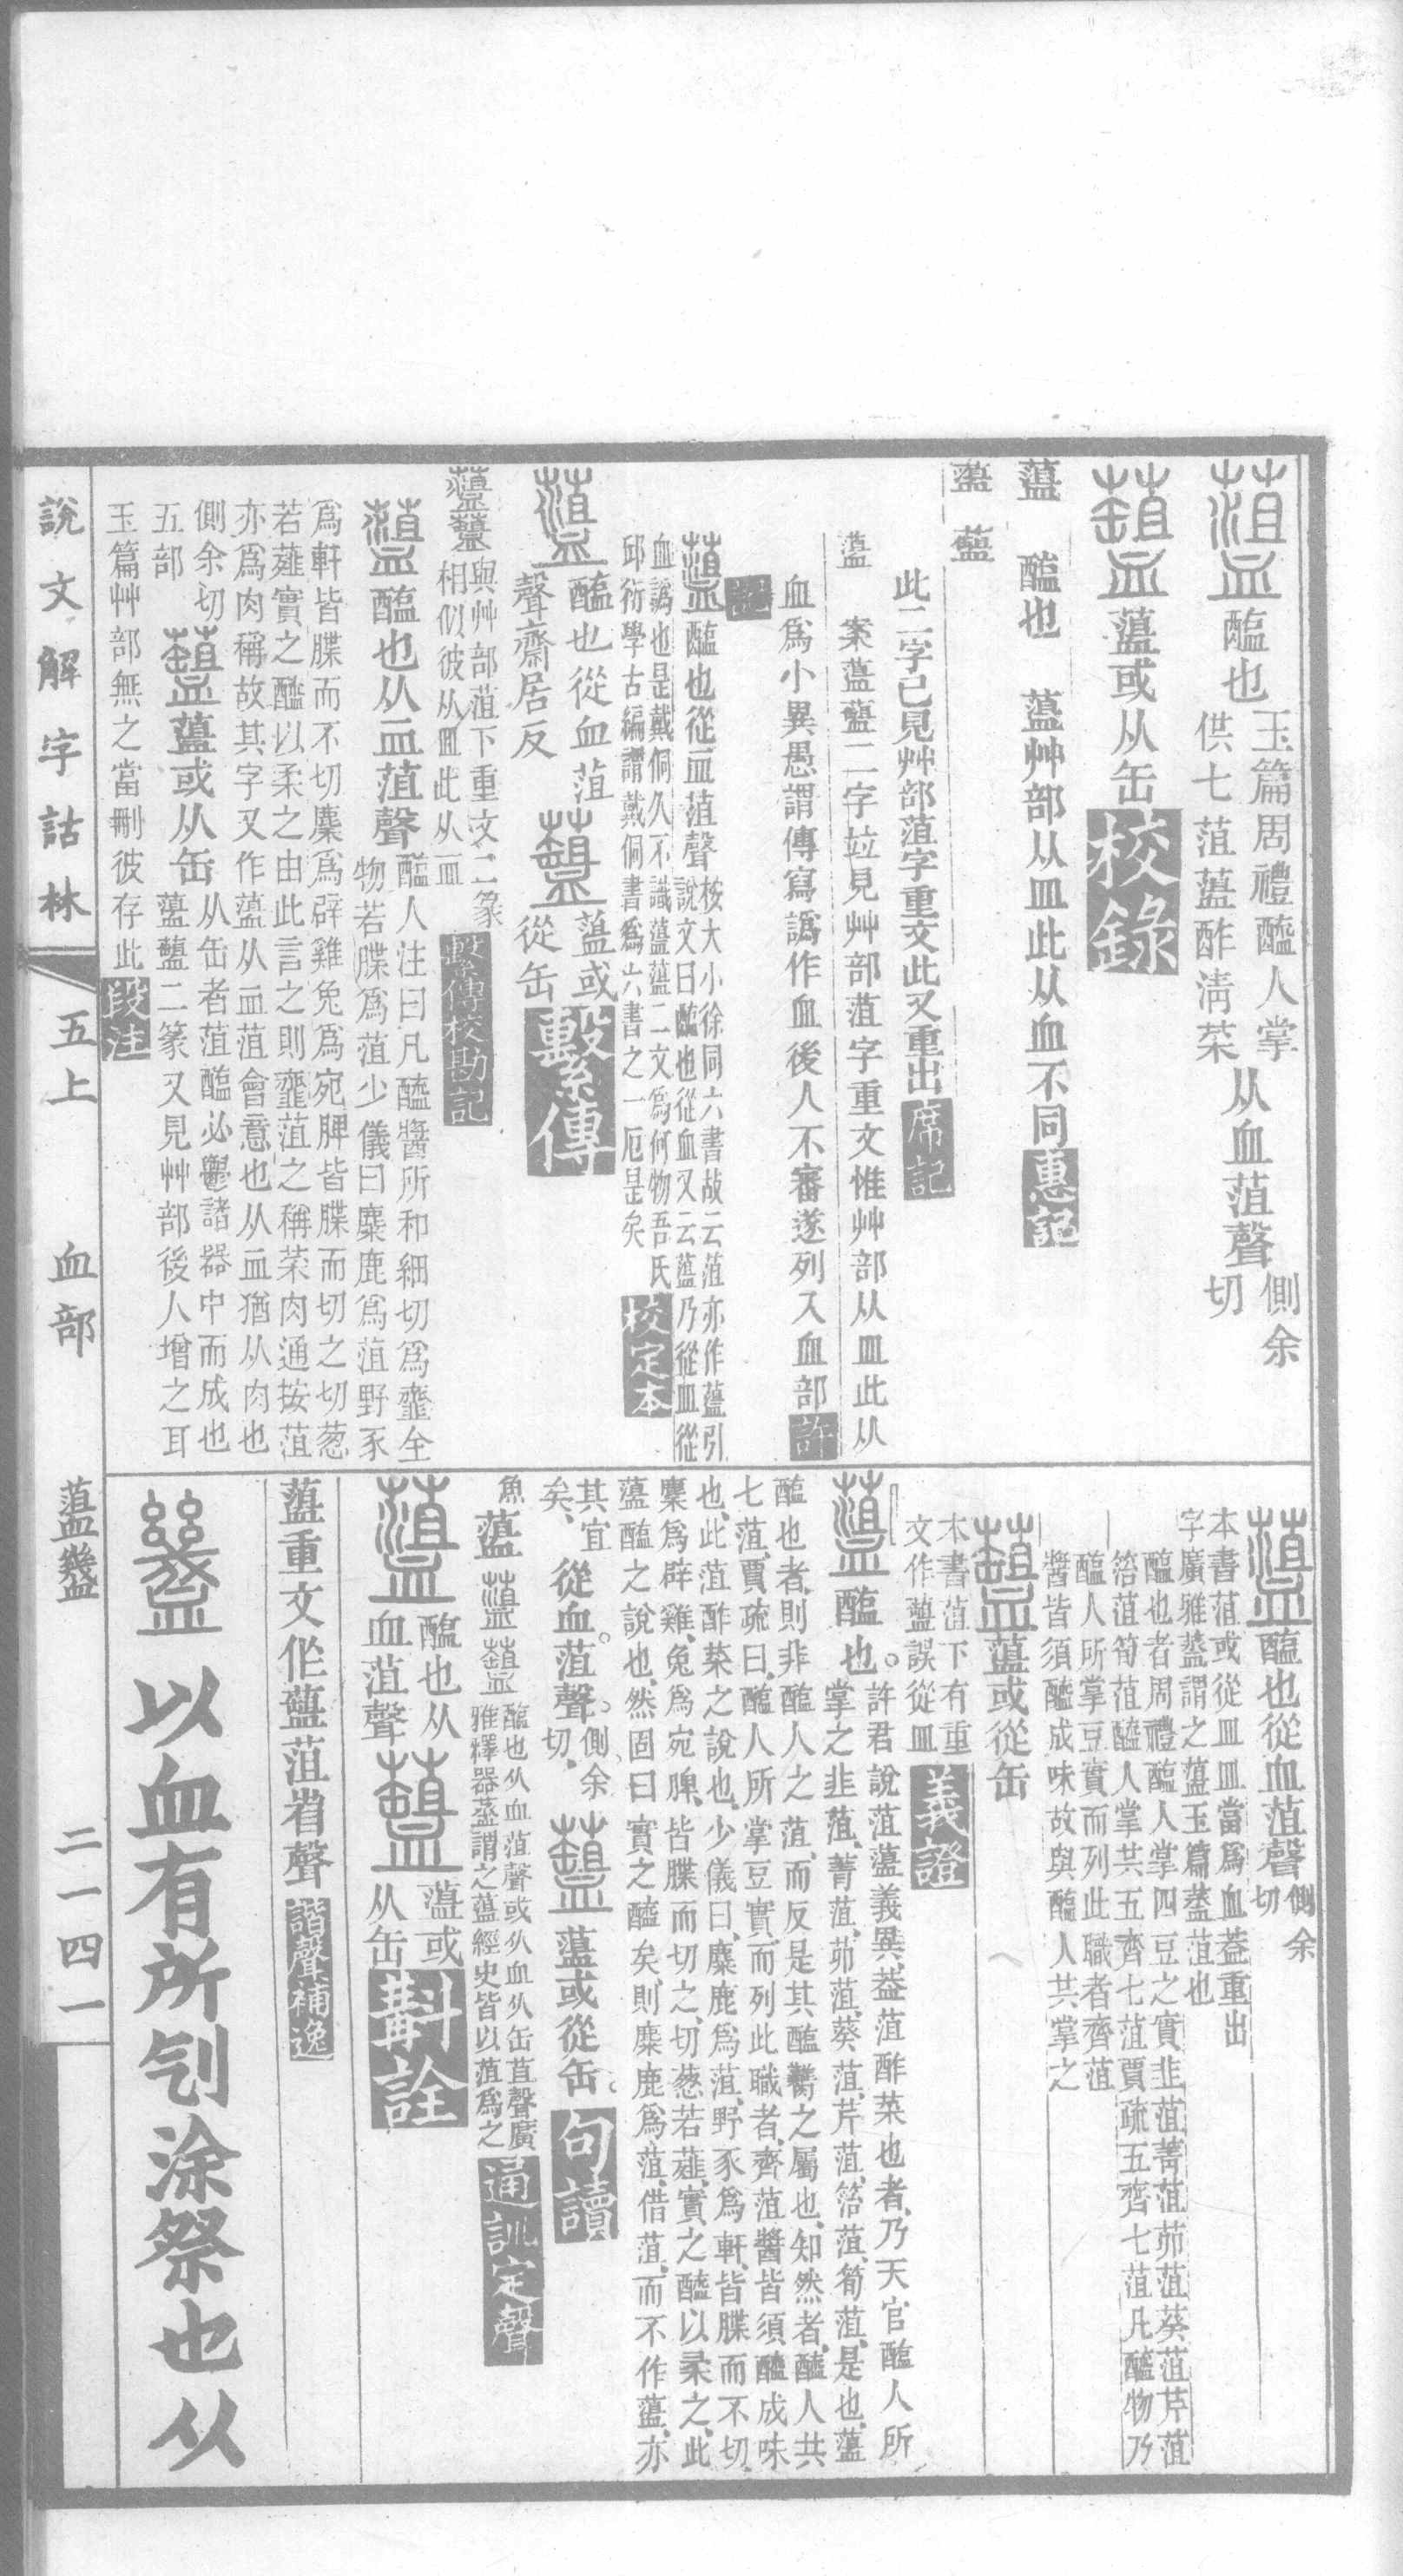 醢也
玉篇周禮醢人掌
供七菹蒩酢淯菜
从血菹聲
側余
切
或从缶 校錄
醢也 艸部从皿此从血不同 惠記
此二字已見艸部菹字重文此又重出 席記
案 二字竝見艸部菹字重文惟艸部从皿此从
血爲小異愚謂傳寫譌作血後人不審遂列入血部 許
記
醢也從血菹聲
按大小徐同六書故云菹亦作 引
說文曰醢也從血又云 乃從皿從
血譌也是戴侗久不識 二文爲何物吾氏
邱衍學古編謂戴侗書爲六書之一厄是矣 校定本
醢也從血菹
聲齋居反
或
從缶 繫傳
與艸部菹下重文二篆
相似彼从皿此从血 繫傳校勘記
醢也从血菹聲
醢人注曰凡醯醬所和細切爲齏全
物若䐑爲菹少儀曰麋鹿爲菹野豕
爲軒皆䐑而不切麇爲辟雞兔爲宛脾皆䐑而切之切葱
若薤實之醯以柔之由此言之則齏菹之稱菜肉通按菹
亦爲肉稱故其字又作 从血菹會意也从血猶从肉也
側余切
五部
或从缶
从缶者菹醢必鬱諸器中而成也
二篆又見艸部後人增之耳
玉篇艸部無之當刪彼存此 段注
說文解字詁林 五上 血部 二一四一
醢也從血菹聲
側余
切
本書菹或從皿皿當爲血葢重出
字廣雅 謂之 玉篇 菹也
醢也者周禮醢人掌四豆之實韭菹菁菹茆菹葵菹芹菹
箈菹筍菹醯人掌共五齊七菹賈疏五齊七菹凡醯物乃
醢人所掌豆實而列此職者齊菹
醬皆須醯成味故與醢人共掌之
或從缶
本書菹下有重
文作 誤從皿 義證
醢也。
許君說菹 義異、葢菹酢菜也者、乃天官醢人所
掌之韭菹、菁菹、茆菹、葵菹、芹菹、箈菹、筍菹、是也、
醢也者、則非醢人之菹、而反是其醢 之屬也、知然者、醯人共
七菹、賈疏曰、醢人所掌豆實、而列此職者、齊菹醬皆須醯成味
也、此菹酢菜之說也、少儀曰、麋鹿爲菹、野豕爲軒、皆䐑而不切、
麇爲辟雞、兔爲宛脾、皆䐑而切之、切葱若薤、實之醯以柔之、此
醢之說也、然固曰實之醯矣、則麋鹿爲菹、借菹、而不作 、亦
其宜
矣、
從血。菹聲。
側余
切、
或從缶。 句讀
魚
醢也从血菹聲或从血从缶苴聲廣
雅釋器 謂之 經史皆以菹爲之 通訓定聲
醢也从
血菹聲
或
从缶 斠詮
重文作 菹省聲 諧聲補逸
以血有所刏涂祭也从